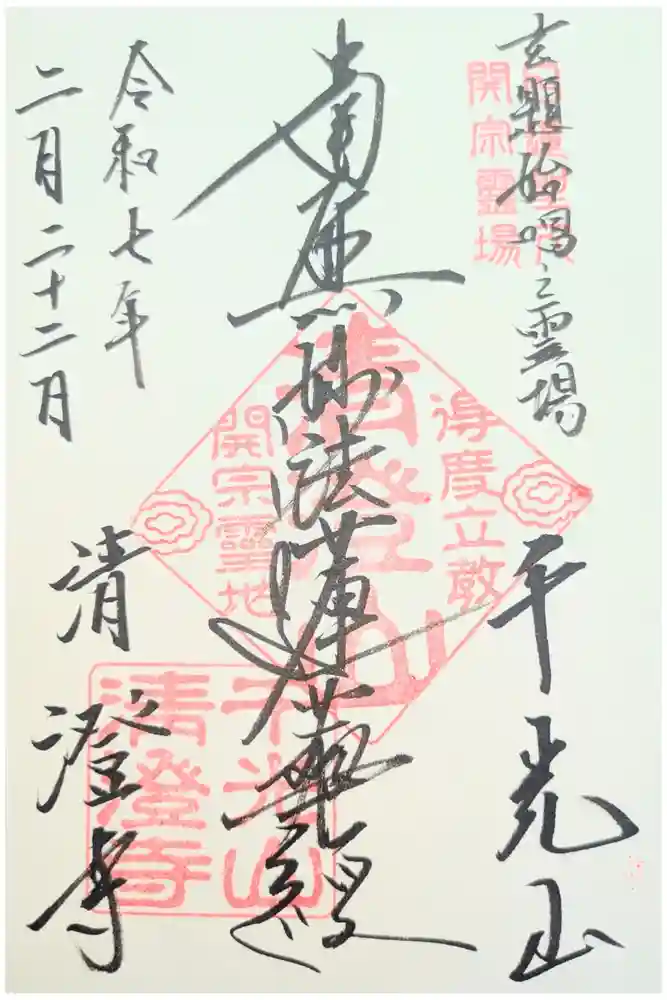 玄題始唱之霊場
千光山
南無妙法蓮華経
令和七年
二月二十二日
清澄寺
開宗霊場
清澄山
得度立教
開宗霊地
千光山
清澄寺